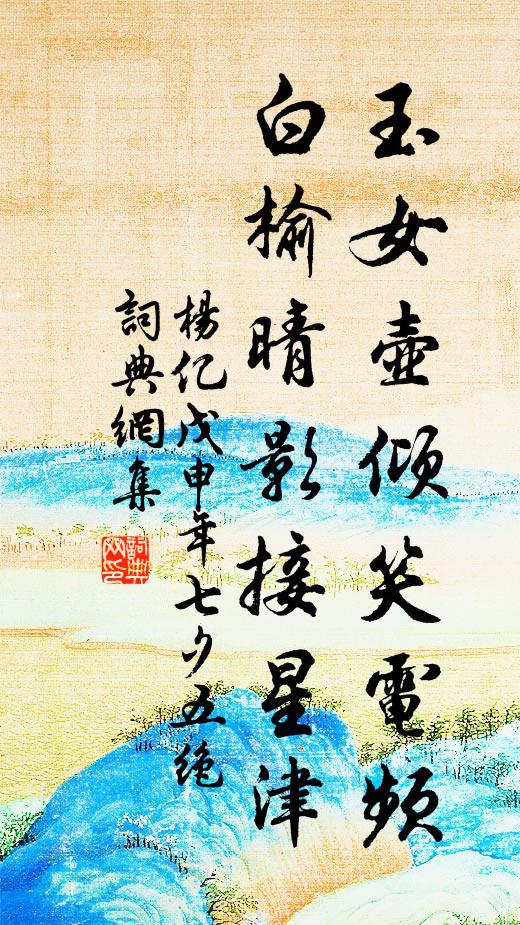 玉女壺傾笑電頻
白榆晴影接星津
楊億戊申年七夕五絶
詞典網集